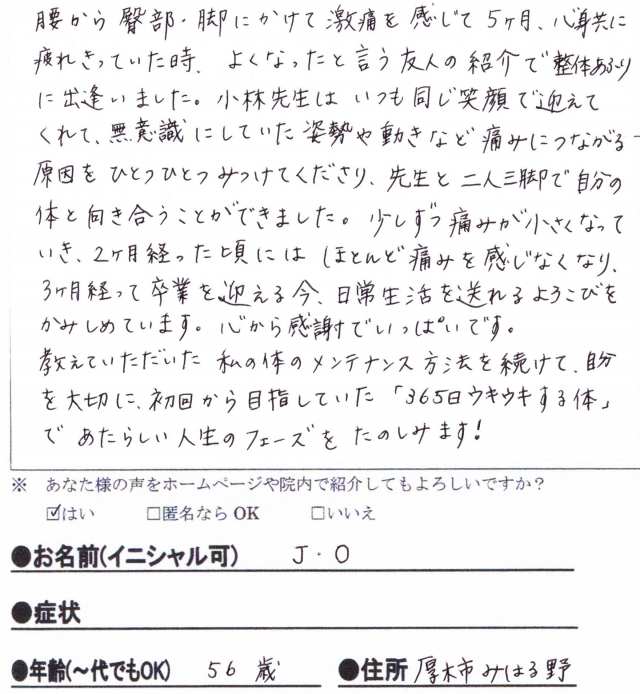 腰から臀部・脚にかけて激痛を感じて5ヶ月、心身共に
疲れきっていた時、よくなったと言う友人の紹介で整体あふり
に出逢いました。小林先生はいつも同じ笑顔で迎えて
くれて、無意識にしていた姿勢や動きなど痛みにつながる
原因をひとつひとつみつけてくださり、先生と二人三脚で自分の
体と向き合うことができました。少しずつ痛みが小さくなって
いき、2ヶ月経った頃にはほとんど痛みを感じなくなり、
3ヶ月経って卒業を迎える今、日常生活を送れるよろこびを
かみしめています。心から感謝でいっぱいです。
教えていただいた私の体のメンテナンス方法を続けて、自分
を大切に、初回から目指していた「365日ウキウキする体」
であたらしい人生のフェーズをたのしみます!
※ あなた様の声をホームページや院内で紹介してもよろしいですか?
☑はい □匿名ならOK □いいえ
●お名前(イニシャル可) J・O
●症状
●年齢(〜代でもOK) 56歳 ●住所 厚木市みはる野